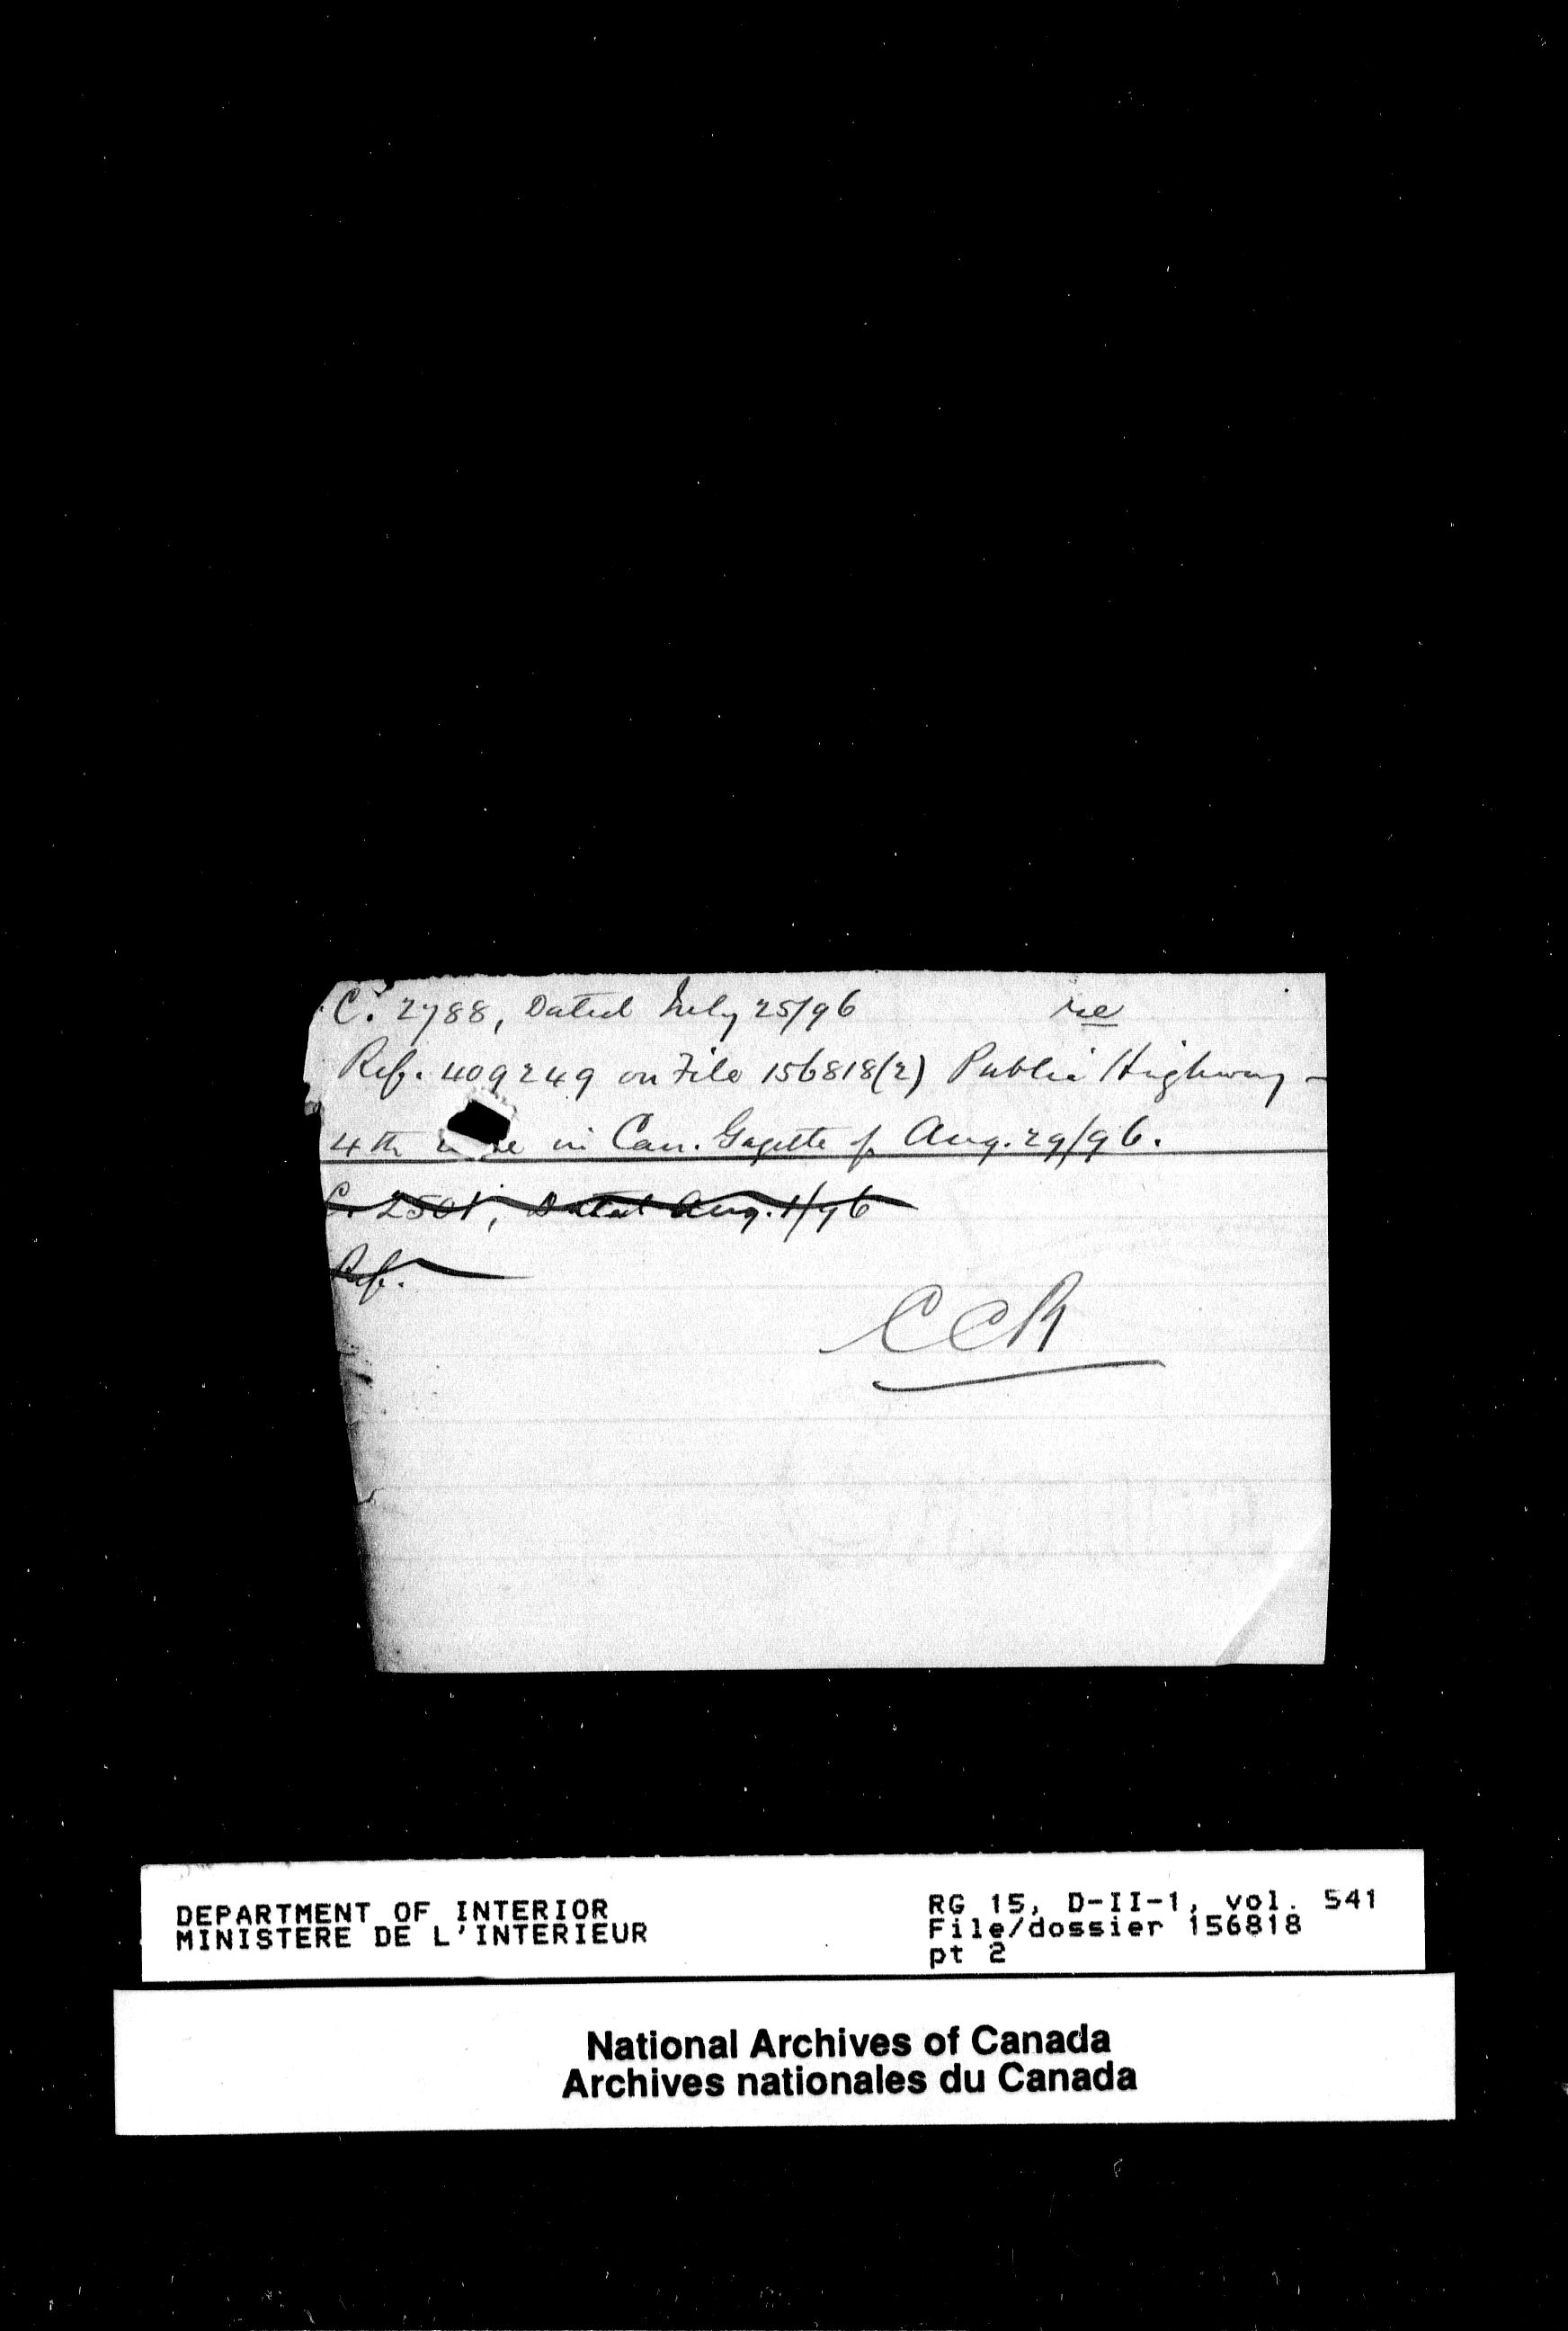 C. 2788, Dated July 25/96 re
Ref. 409249 on File 156818(2) Public Highway -
4th in Can. Gazette of Aug. 29/96.
C. 2501, Dated Aug. 1/96
Ref.
CCR
DEPARTMENT OF INTERIOR
MINISTERE DE L'INTERIEUR
RG 15, D-II-1, vol. 541
File/dossier 156818
pt 2
National Archives of Canada
Archives nationales du Canada